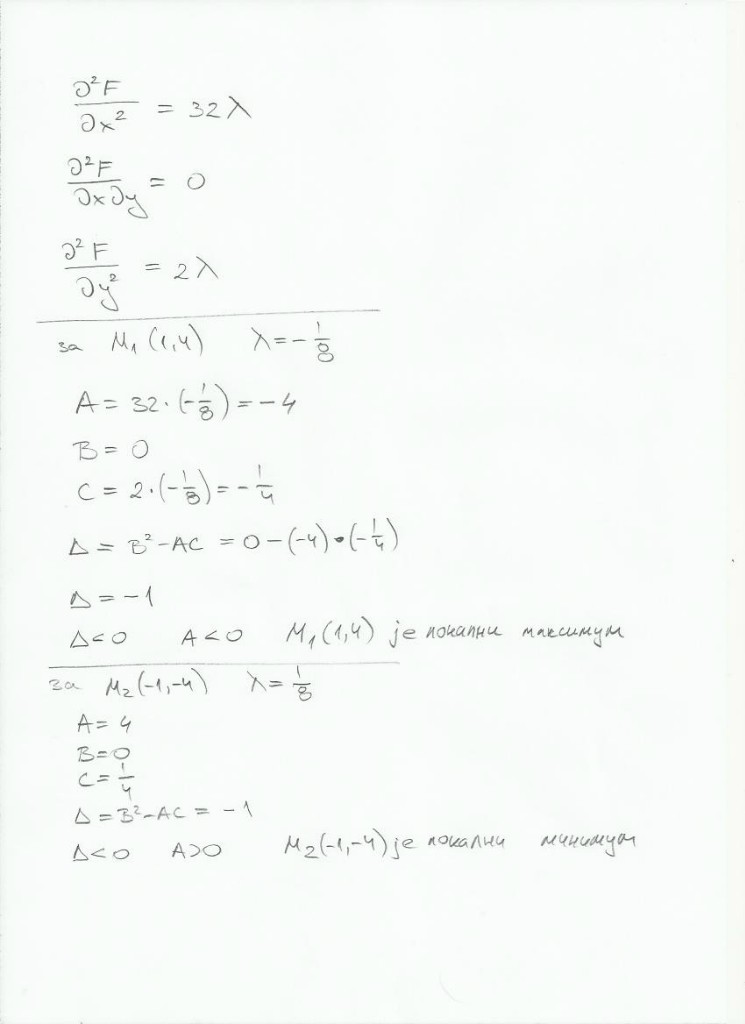 ∂²F/∂x² = 32λ
∂²F/∂x∂y = 0
∂²F/∂y² = 2λ
за M₁(1,4) λ=-1/8
A = 32·(-1/8) = -4
B = 0
C = 2·(-1/8) = -1/4
Δ = B²-AC = 0-(-4)·(-1/4)
Δ = -1
Δ<0 A<0 M₁(1,4) је локални максимум
за M₂(-1,-4) λ=1/8
A=4
B=0
C=1/4
Δ=B²-AC = -1
Δ<0 A>0 M₂(-1,-4) је локални минимум